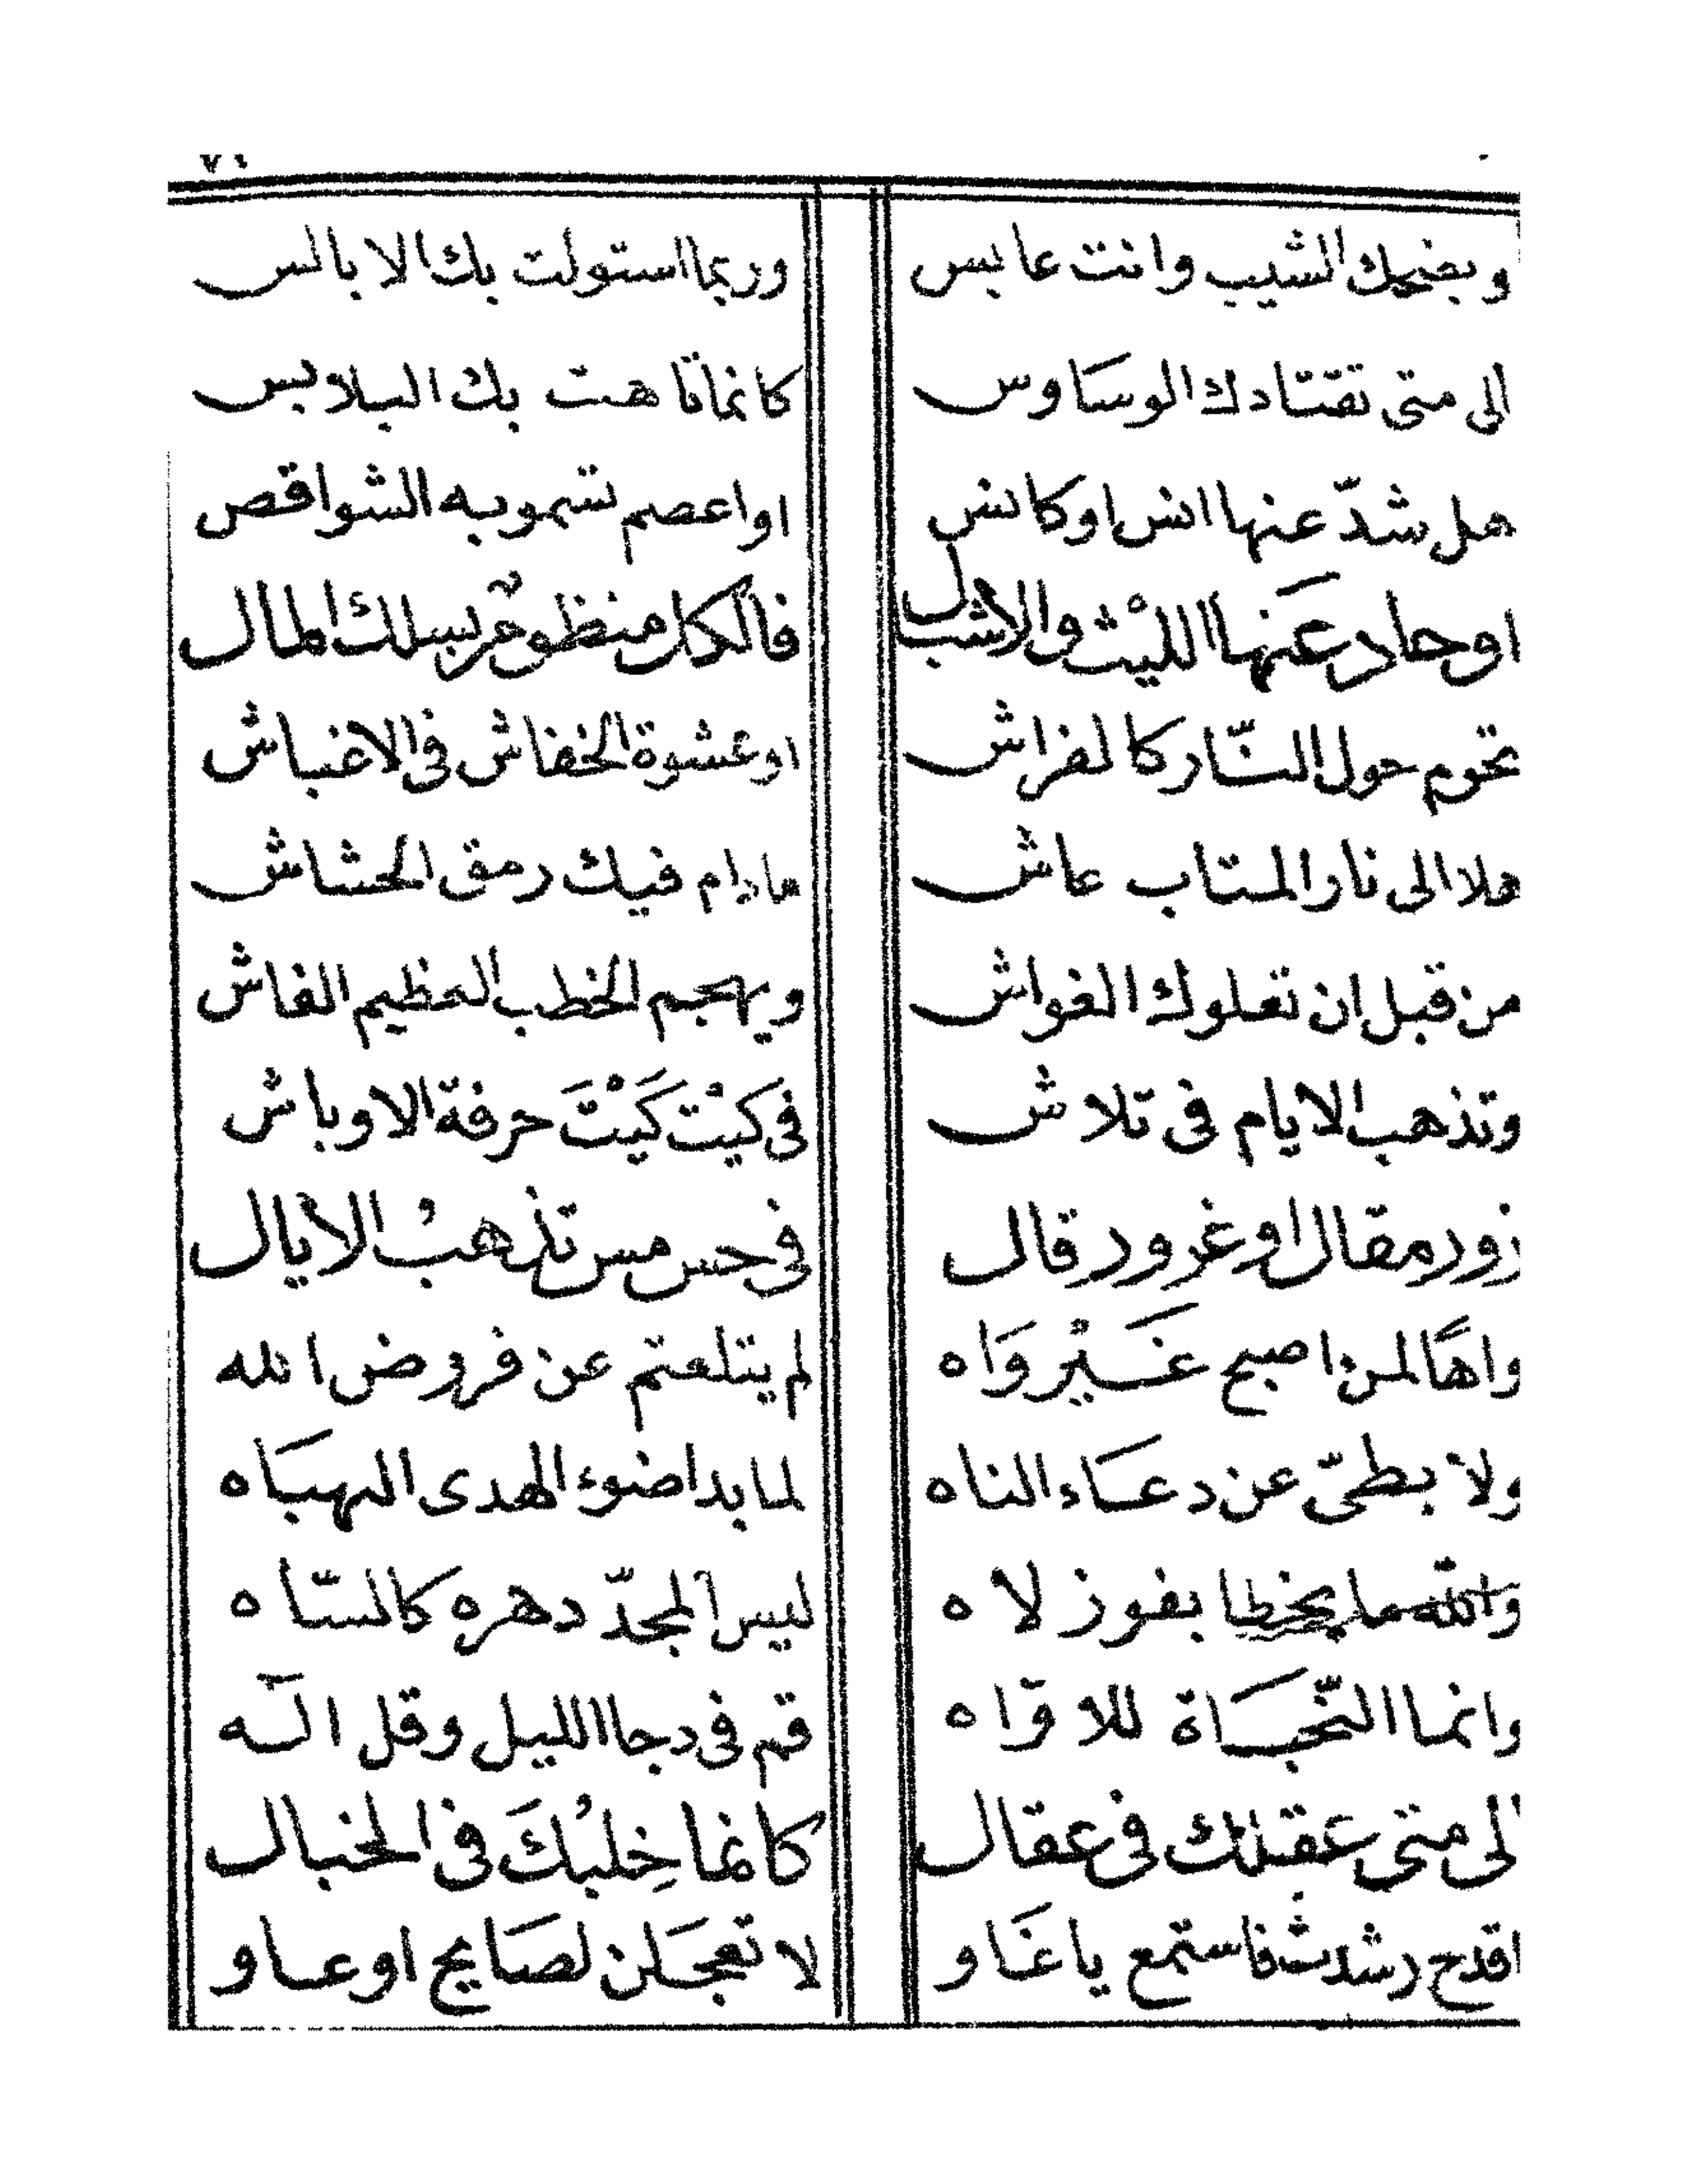 ويضحك الشيب وانت عابس وربما استولت بك الابالس
الى متى تقتادك الوساوس كانما تاهت بك البلابس
هل شدّ عنها انس اوكانس اواعصم تسموبه الشواقص
اوحاد عَنها الليث والاشبال فالكل منظوم بسلك المال
تحوم حول النّار كالفراش اوعشوة الخفاش فى الاغباش
هلا الى نار المتاب عاش مادام فيك رمق الحشاش
من قبل ان تعلوك الغواش ويهجم الخطب العظيم الفاش
وتذهب الايام فى تلاش فى كيْت كَيْتَ حرفة الاوباش
زور مقال اوغرور قال فى حس مس تذهبُ الايال
واهًا لمن اصبح غَيْر وَاه لم يتلعتم عن فروض الله
ولا بطىّ عن دعَاء الناه لما بدا ضوء الهدى البهبَاه
والله ما يخطا بفوز لاه ليس المجدّ دهره كالسّاه
وانما النّجَاة للاوّاه قم فى دجا الليل وقل اللّه
الى متى عقلك فى عقال كانما خِلبُكَ فى الخبال
اقدح رشدت فاستمع يا غَاو لا تعجَلن لصَايح اوعاو